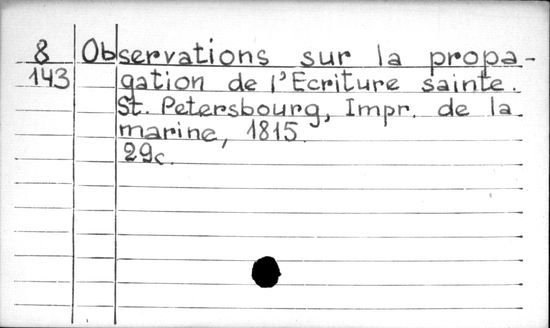 8 Observations sur la propa-
143 gation de l'Ecriture sainte.
St. Petersbourg, Impr. de la
marine, 1815.
29c.